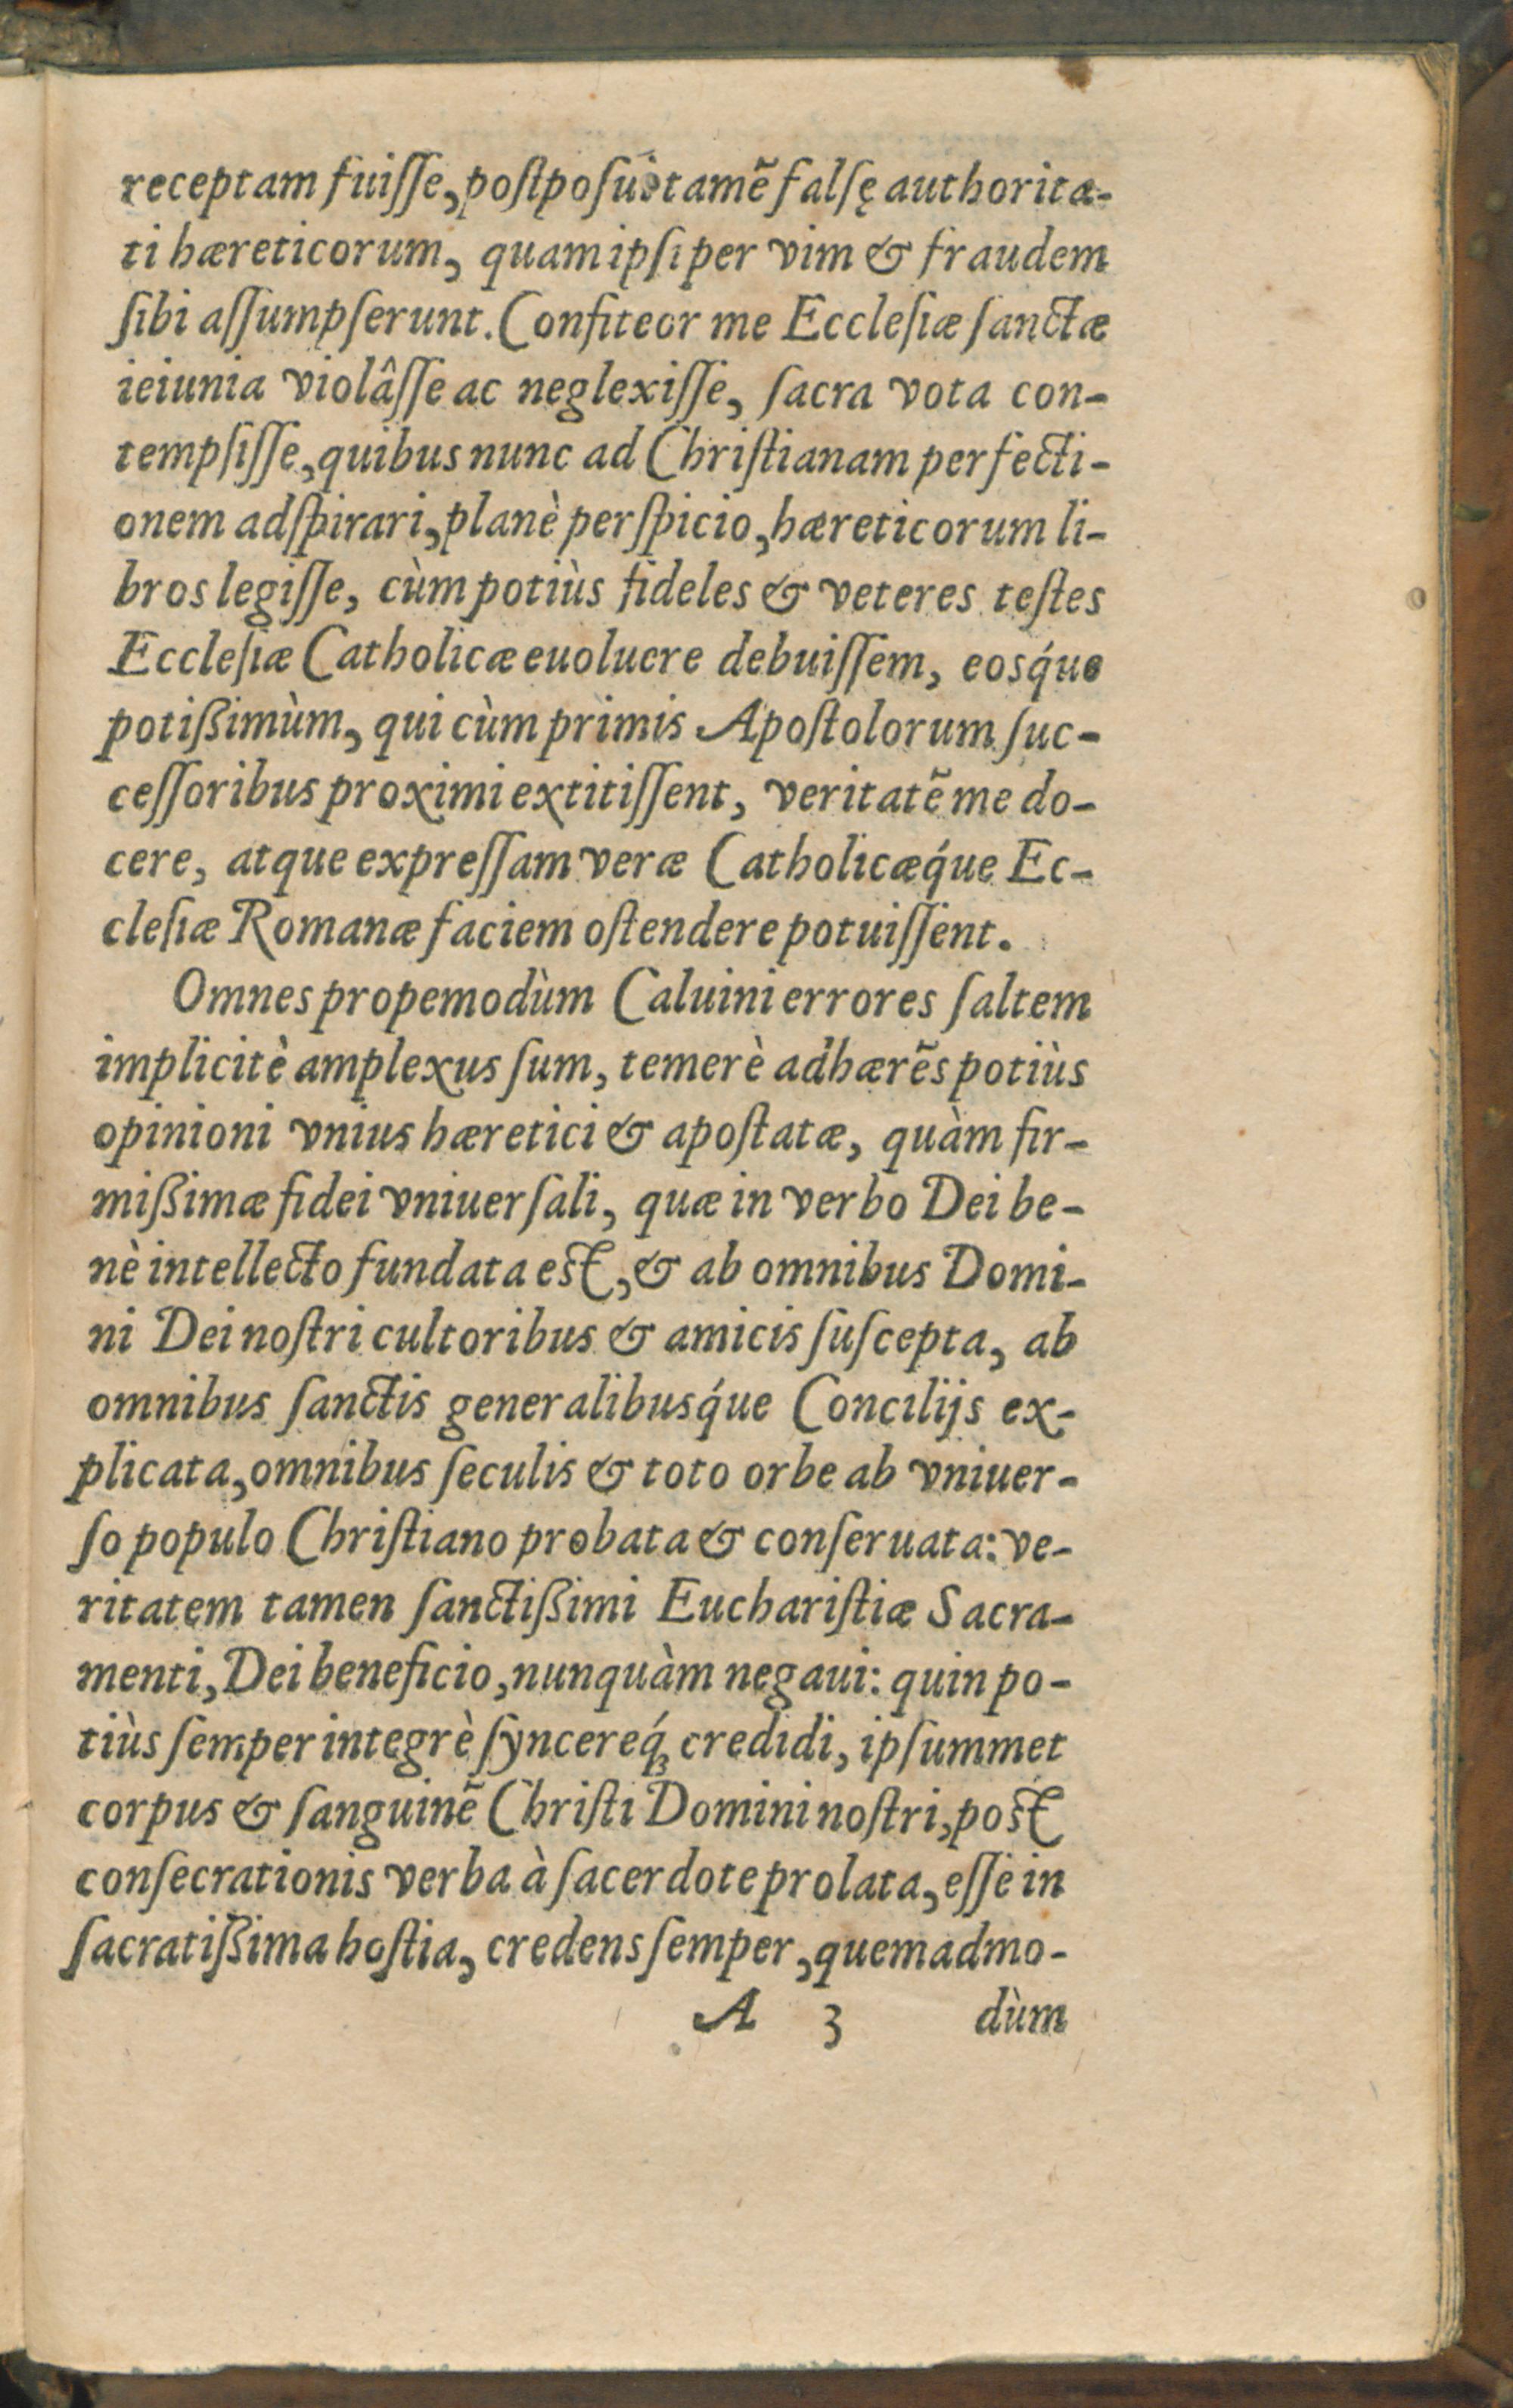 receptam fuiſſe, poſtpoſui tamẽ falſę authorita-
ti hæreticorum, quam ipſi per vim & fraudem
ſibi aſſumpſerunt. Confiteor me Eccleſiæ ſanctæ
ieiunia violâſſe ac neglexiſſe, ſacra vota con-
tempſiſſe, quibus nunc ad Chriſtianam perfecti-
onem adſpirari, planè perſpicio, hæreticorum li-
bros legiſſe, cùm potiùs fideles & veteres teſtes
Eccleſiæ Catholicæ euoluere debuiſſem, eosq́ue
potißimùm, qui cùm primis Apoſtolorum ſuc-
ceſſoribus proximi extitiſſent, veritatẽ me do-
cere, atque expreſſam veræ Catholicæq́ue Ec-
cleſiæ Romanæ faciem oſtendere potuiſſent.
Omnes propemodùm Caluini errores ſaltem
implicitè amplexus ſum, temerè adhærẽs potiùs
opinioni vnius hæretici & apoſtatæ, quàm fir-
mißimæ fidei vniuerſali, quæ in verbo Dei be-
nè intellecto fundata eſt, & ab omnibus Domi-
ni Dei noſtri cultoribus & amicis ſuſcepta, ab
omnibus ſanctis generalibusq́ue Concilijs ex-
plicata, omnibus ſeculis & toto orbe ab vniuer-
ſo populo Chriſtiano probata & conſeruata: ve-
ritatem tamen ſanctißimi Euchariſtiæ Sacra-
menti, Dei beneficio, nunquàm negaui: quin po-
tiùs ſemper integrè ſyncereq́; credidi, ipſummet
corpus & ſanguinẽ Chriſti Domini noſtri, poſt
conſecrationis verba à ſacerdote prolata, eſſe in
ſacratißima hoſtia, credens ſemper, quemadmo-
A 3 dùm